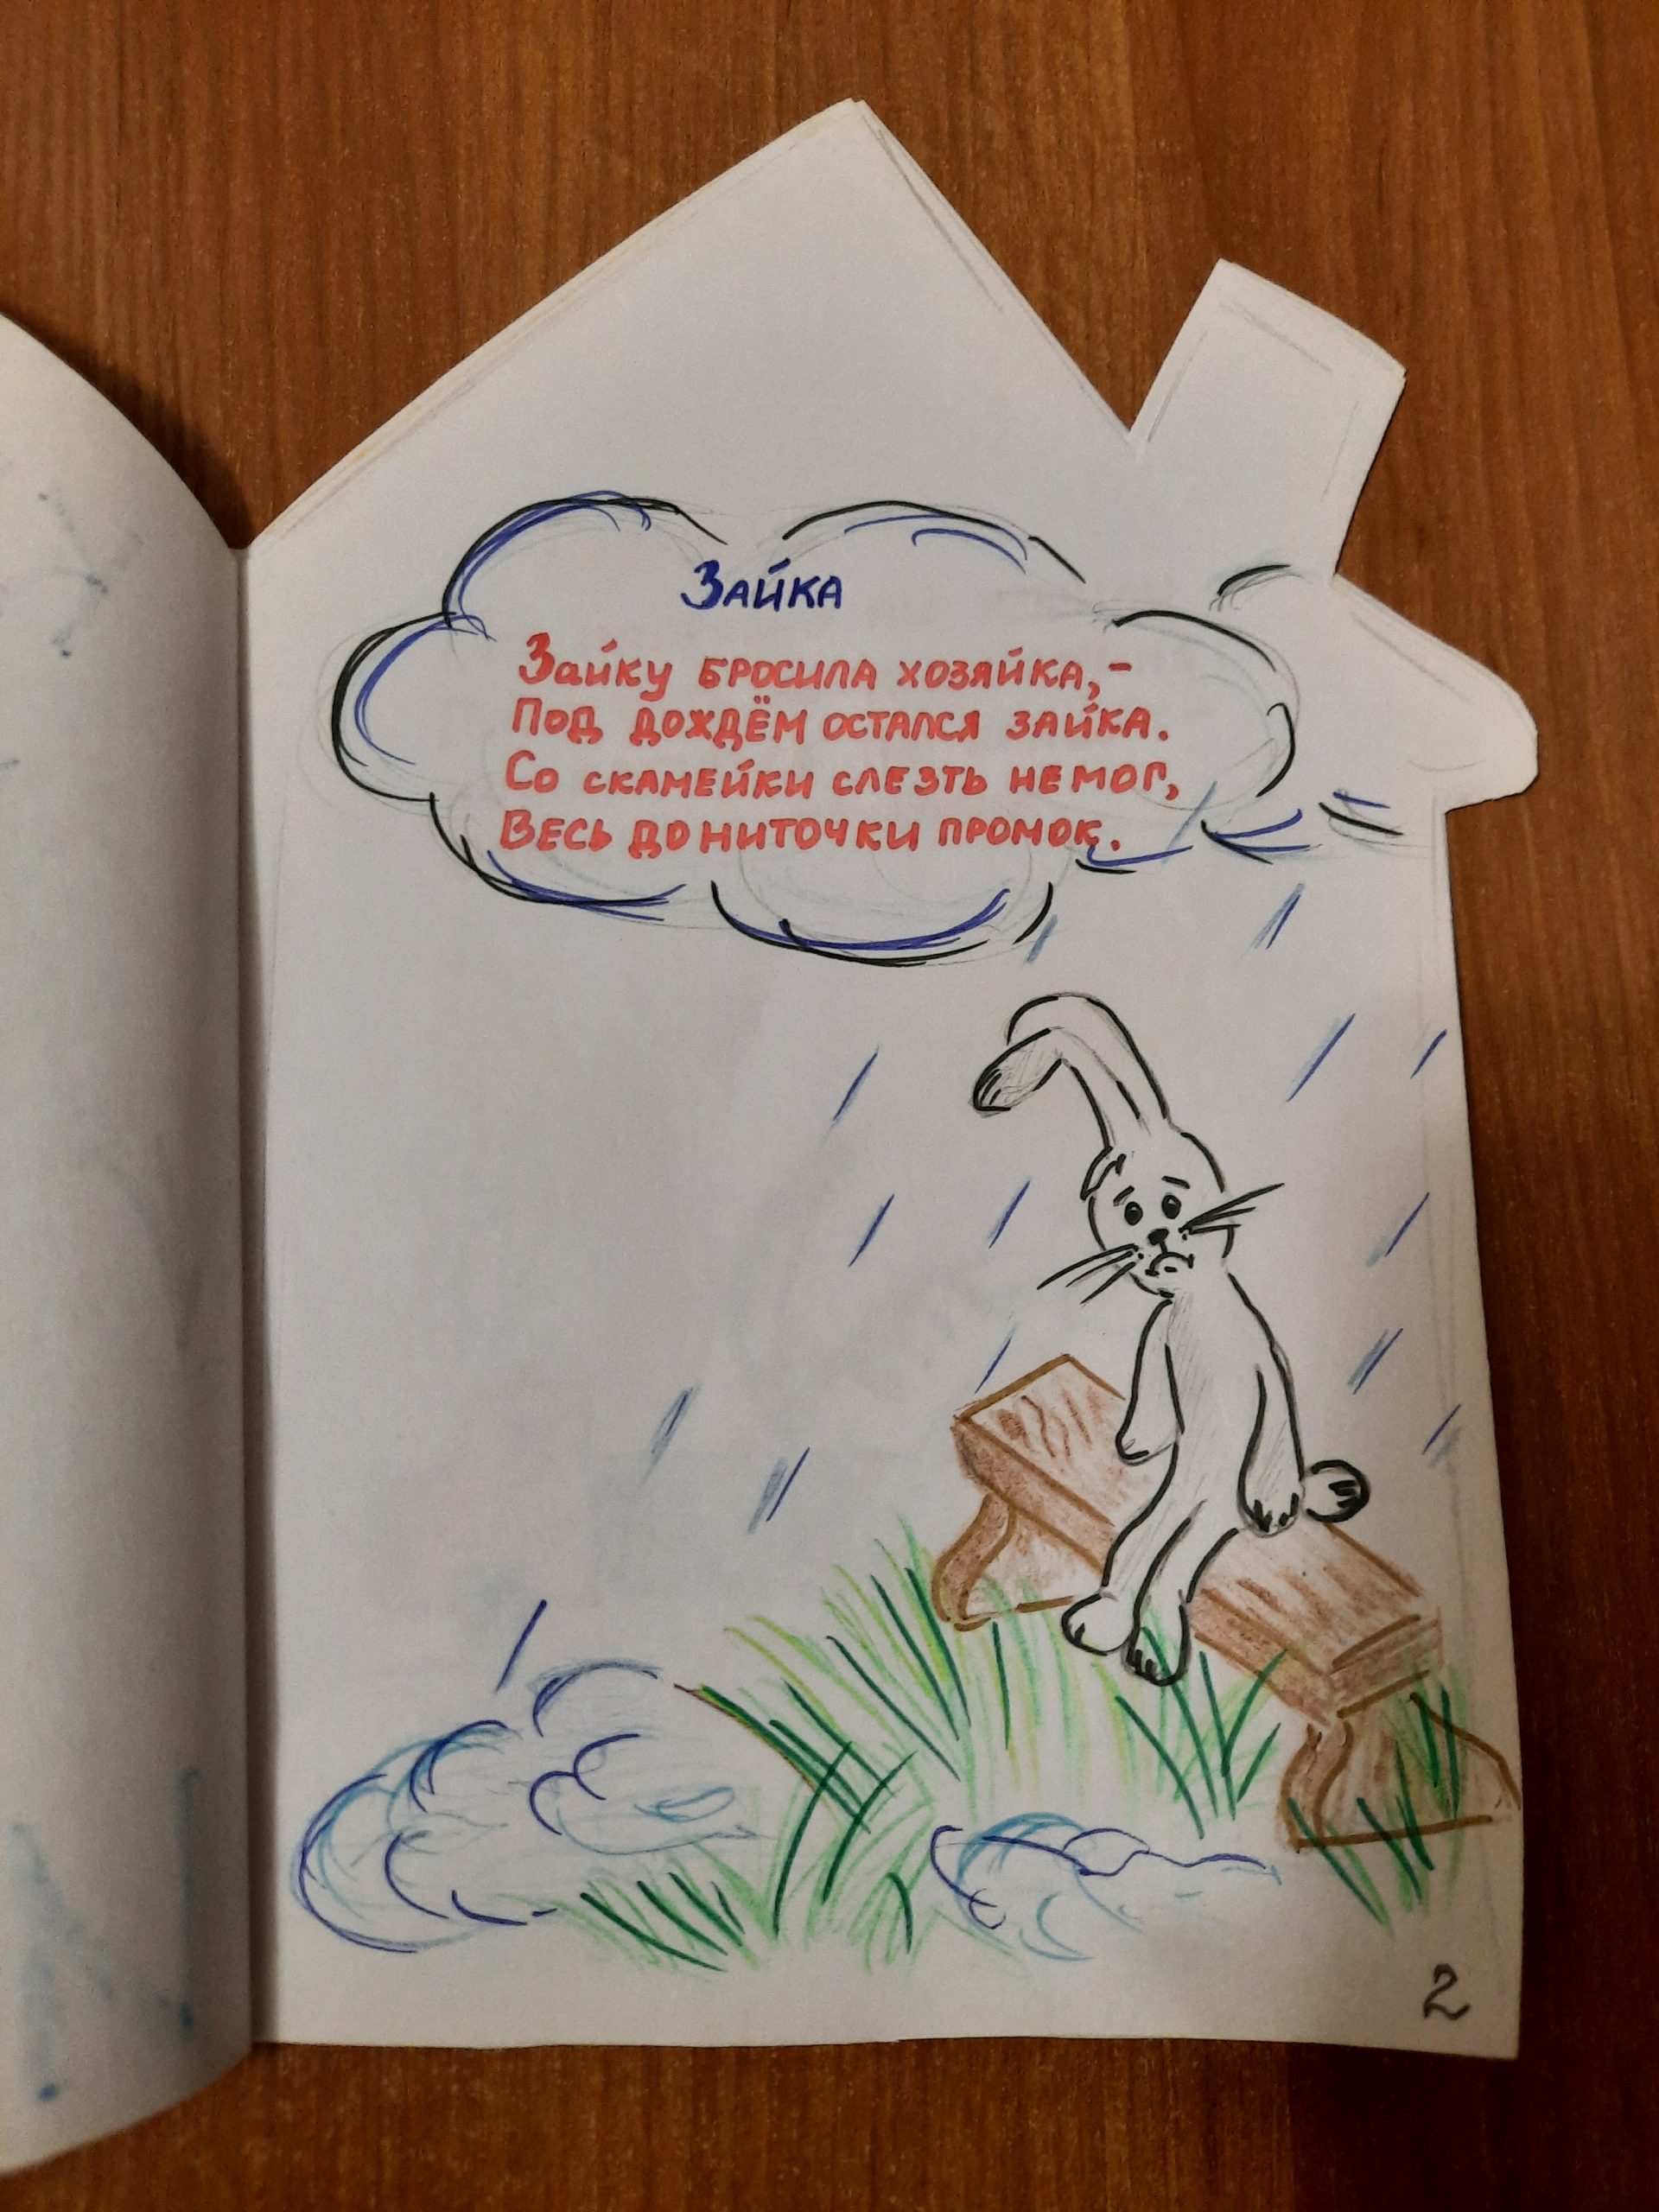 Зайка
Зайку бросила хозяйка,-
Под дождём остался зайка.
Со скамейки слезть не мог,
Весь до ниточки промок.
2